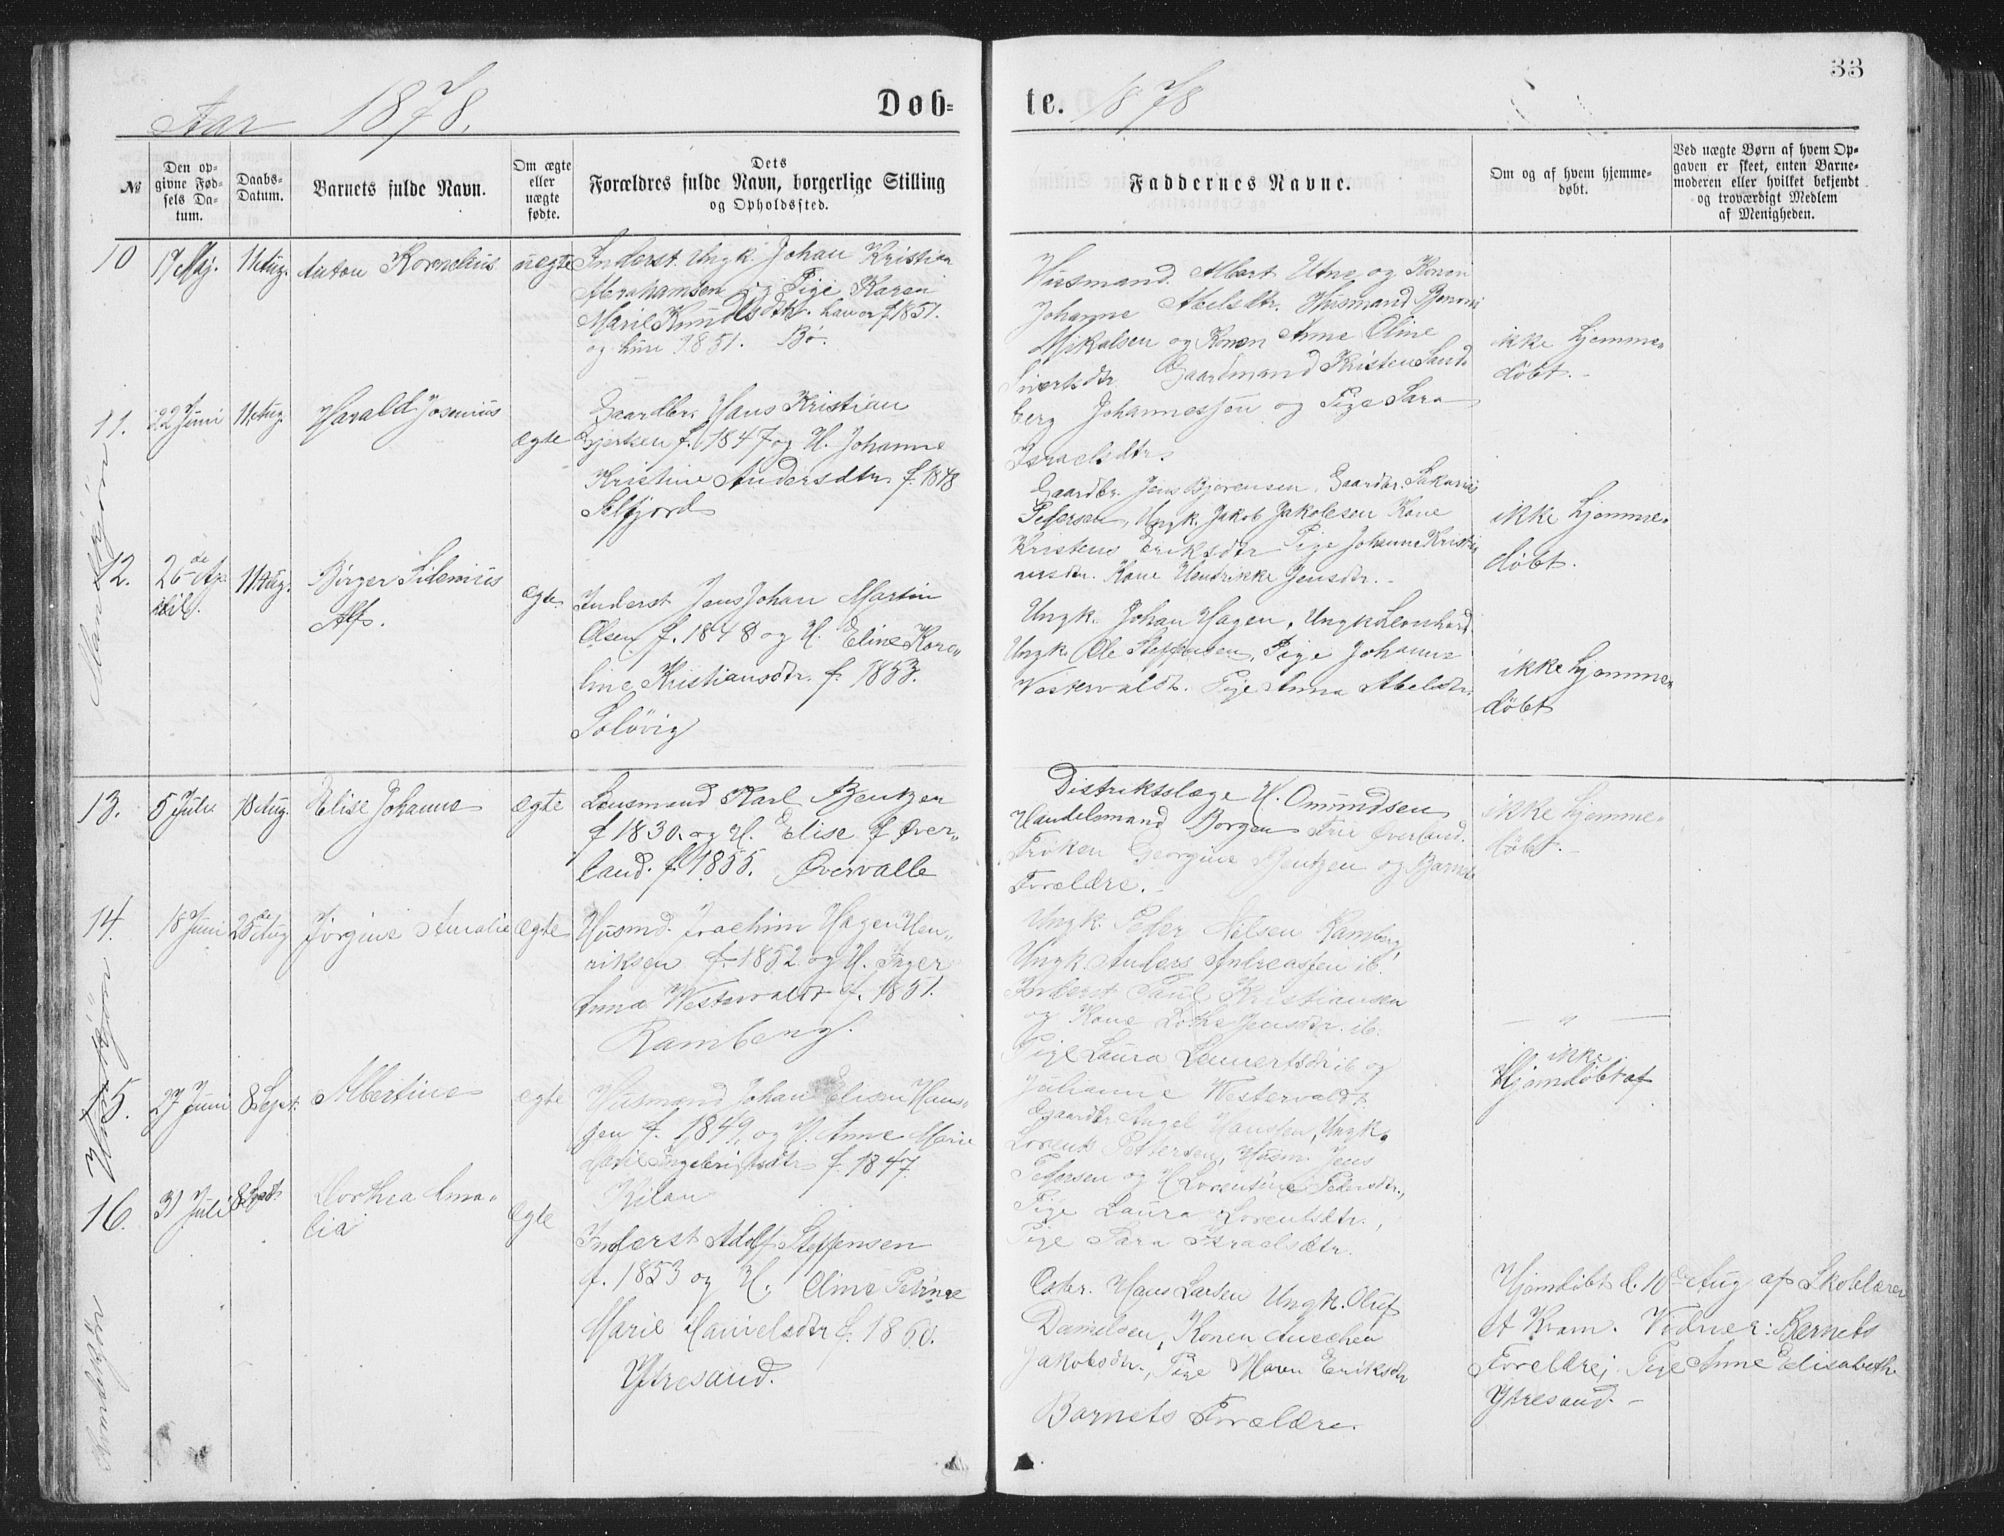 33
Aar 1878.
Døb-
te. 1878
№
Den op-
givne Fød-
sels Da-
tum.
Daabs-
Datum.
Barnets fulde Navn.
Om ægte
eller
uægte
fødte.
Dets
Forældres fulde Navn, borgerlige Stilling
og Opholdssted.
Faddernes Navne.
Om og af hvem hjemme-
døbt.
Ved uægte Børn af hvem Op-
gaven er skeet, enten Barne-
moderen eller hvilket bekjendt
og troværdigt Medlem
af Menigheden.
Mandkjøn
10
17 Maj.
11 Aug.
Anton Kornelius
uægte
Inderst. Ungk. Johan Kristian
Abrahamsen og Pige Karen
Marie Knudsdtr. han er f 1851.
og hun 1851. Bø.
Husmand. Albert Utne og Konen
Johanne Abelsdtr. Husmand Benoni
Mikalsen og Konen Anne Oline
Sivertsdtr. Gaardmand Kristen Sand-
berg Johannesjøn og Pige Sara
Israelsdtr.
ikke hjemme-
døbt.-
11.
22 Juni
11. Aug.
Harald Josenius
ægte
Gaardbr. Hans Kristian
Gjertsen f. 1847 og H. Johanne
Kristine Andersdtr. f. 1848
Selfjord
Gaardbr. Jens Bjørensen, Gaardbr. Sakarias
Pedersen, Ungk. Jakob Jakobsen Kone
Eriksdtr Pige Johanne
Kone Hendrikke Jensdtr.-
ikke hjemme-
døbt.
12.
26de Ap-
ril.
11 Aug.
Børger Silenius
Alf.
ægte
Inderst Jens Johan Martin
Olsen f. 1848 og H. Eline Kore-
line Kristiansdtr. f. 1853.
Soløvig
Ungk. Johan Hagen, Ungk Leonhard
Ungk. Ole Steffensen, Pige Johanne
Westervaldt. Pige Anna Abelsdtr.
ikke hjemme-
døbt
Kvindekjøn
13.
5 Juli
18 Aug.
Elise Johanne
ægte
Lensmand Karl Bentzen
f 1830. og H. Elise f Øver-
land. f. 1855. Øvervalle
Distriktslæge H. Omundsen
Handelsmand Borgen Frue Øverland.
Frøken Georgine Bentzen og Barnets
Forældre.-
ikke hjemme-
døbt.-
14.
18 Juni
25de Aug
Jørgine Amalie
ægte
Husmd. Joachim Hagen Hen-
riksen f. 1852 og H. Inger
Anna Westervaldt f. 1851.
Ramberg.
Ungk. Peder Nilsen Ramberg,
Ungk. Anders Andreassen ib.
Inderst Paul Kristiansen
og Kone Lothe Jensdtr. ib.
Pige Laura Lennertsdtr ib og
Julianne Westervaldt.
— " —
15.
27 Juni
8 Sept.
Albertine
ægte
Husmand Johan Elisen Han-
sen f. 1849, og H. Anne Marie
Ingebrigtsdtr f. 1847.
Kilan
Gaardbr. Angel Hansen, Ungk.
Lorents Pedersen, Husm. Jens
Pedersen og H Lorentine Pedersdtr.,
Pige Laura Lorentsdtr.,
Pige Sara Israelsdtr.
ikke
Hjemdøbt af
Kvindekjøn
16.
31 Juli
8 Sept.
Dorthea Ama-
lia
ægte
Inderst Adolf Steffensen
f. 1853 og H. Oline Petrine
Marie Danielsdtr f. 1860.
Ytresand.
Hans Larsen Ungk. Oluf
Danielsen, Konen Anechen
Jakobsdtr., Pige Maren Eriksdtr
Barnets Forældre.
Hjemdøbt d. 10de Aug af Skolelærer
A Kram. Vidner: Barnets
Forældre; Pige Anne Elisabeth
Ytresand.-